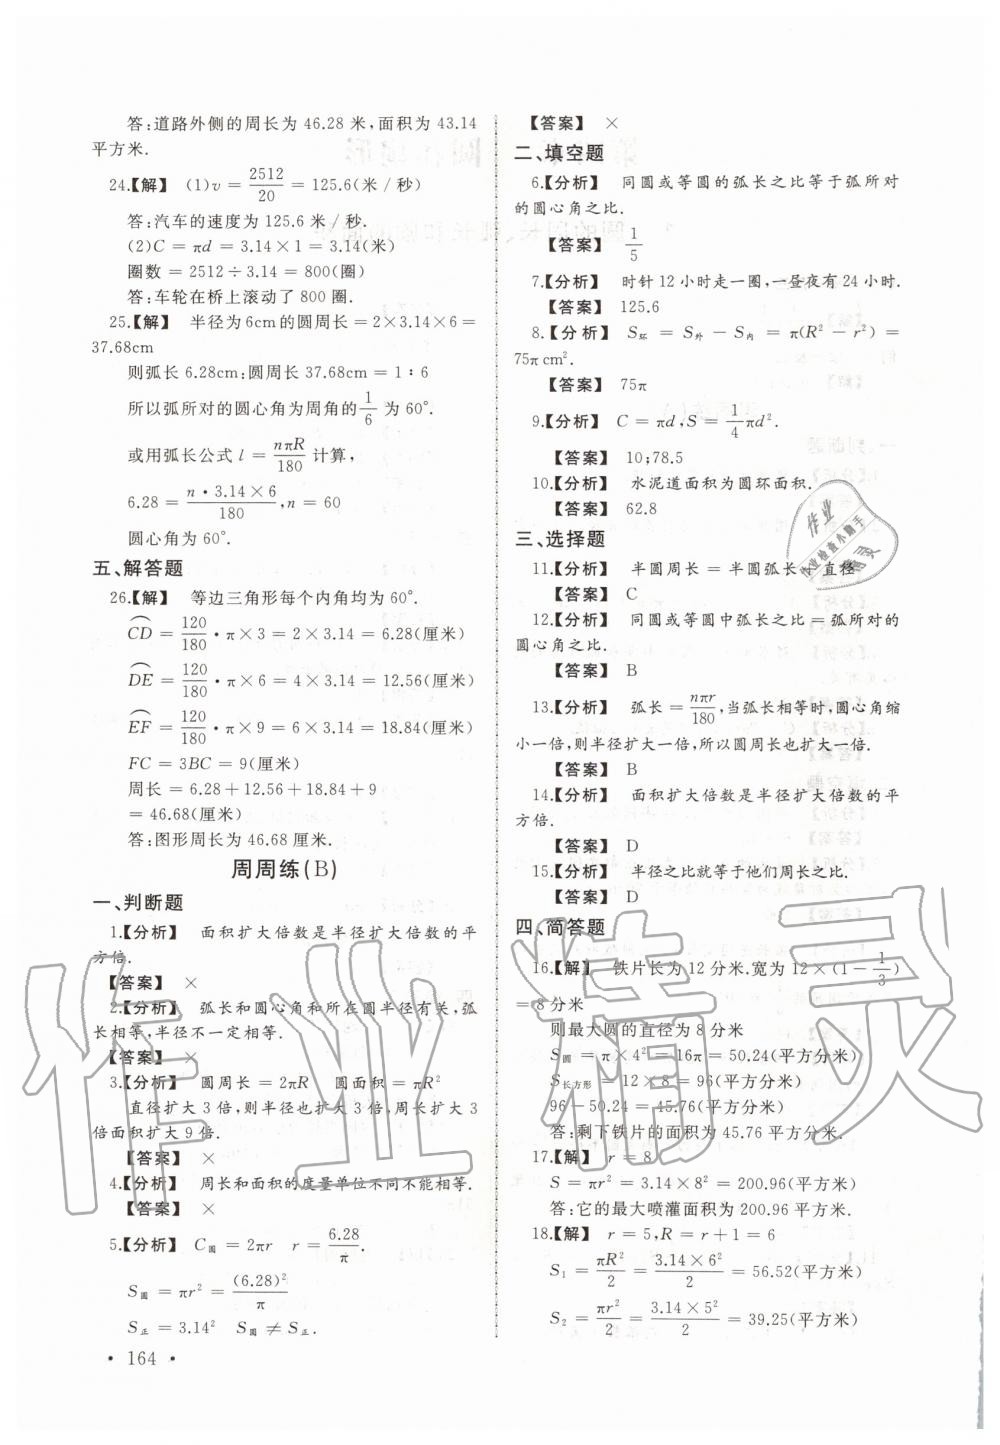 答:道路外侧的周长为 46.28 米,面积为 43.14
平方米.
24.【解】 (1)v = 2512/20 = 125.6(米 / 秒)
答:汽车的速度为 125.6 米 / 秒.
(2)C = πd = 3.14×1 = 3.14(米)
圈数 = 2512÷3.14 = 800(圈)
答:车轮在桥上滚动了 800 圈.
25.【解】 半径为6cm的圆周长 = 2×3.14×6 =
37.68cm
则弧长 6.28cm:圆周长 37.68cm = 1∶6
所以弧所对的圆心角为周角的 1/6 为 60°.
或用弧长公式 l = nπR/180 计算,
6.28 = n·3.14×6/180 ,n = 60
圆心角为 60°.
五、解答题
26.【解】 等边三角形每个内角均为 60°.
⌒CD = 120/180·π×3 = 2×3.14 = 6.28(厘米)
⌒DE = 120/180·π×6 = 4×3.14 = 12.56(厘米)
⌒EF = 120/180·π×9 = 6×3.14 = 18.84(厘米)
FC = 3BC = 9(厘米)
周长 = 6.28+12.56+18.84+9
= 46.68(厘米)
答:图形周长为 46.68 厘米.
周周练(B)
一、判断题
1.【分析】 面积扩大倍数是半径扩大倍数的平
方倍.
【答案】 ×
2.【分析】 弧长和圆心角和所在圆半径有关,弧
长相等,半径不一定相等.
【答案】 ×
3.【分析】 圆周长 = 2πR 圆面积 = πR²
直径扩大 3 倍,则半径扩大 3 倍,周长扩大 3
倍面积扩大 9 倍.
【答案】 ×
4.【分析】 周长和面积的度量单位不同不能相等.
【答案】 ×
5.【分析】 C圆 = 2πr r = 6.28/π.
S圆 = πr² = (6.28)²/π
S正 = 3.14² S圆 ≠ S正.
• 164 •
【答案】 ×
二、填空题
6.【分析】 同圆或等圆的弧长之比等于弧所对
的圆心角之比.
【答案】 1/5
7.【分析】 时针 12 小时走一圈,一昼夜有 24 小时.
【答案】 125.6
8.【分析】 S环 = S外 − S内 = π(R² − r²) =
75π cm².
【答案】 75π
9.【分析】 C = πd,S = 1/4 πd².
【答案】 10;78.5
10.【分析】 水泥道面积为圆环面积.
【答案】 62.8
三、选择题
11.【分析】 半圆周长 = 半圆弧长 + 直径
【答案】 C
12.【分析】 同圆或等圆中弧长之比 = 弧所对的
圆心角之比.
【答案】 B
13.【分析】 弧长 = nπr/180,当弧长相等时,圆心角缩
小一倍,则半径扩大一倍,所以圆周长也扩大一倍.
【答案】 B
14.【分析】 面积扩大倍数是半径扩大倍数的平
方倍.
【答案】 D
15.【分析】 半径之比就等于他们周长之比.
【答案】 D
四、简答题
16.【解】 铁片长为 12 分米.宽为 12×(1−1/3)
= 8 分米
则最大圆的直径为 8 分米
S圆 = π×4² = 16π = 50.24(平方分米)
S长方形 = 12×8 = 96(平方分米)
96−50.24 = 45.76(平方分米)
答:剩下铁片的面积为 45.76 平方分米.
17.【解】 r = 8
S = πr² = 3.14×8² = 200.96(平方米)
答:它的最大喷灌面积为 200.96 平方米
18.【解】 r = 5,R = r+1 = 6
S₁ = πR²/2 = 3.14×6²/2 = 56.52(平方米)
S₂ = πr²/2 = 3.14×5²/2 = 39.25(平方米)
作业
作业检查小助手
精灵
作业精灵